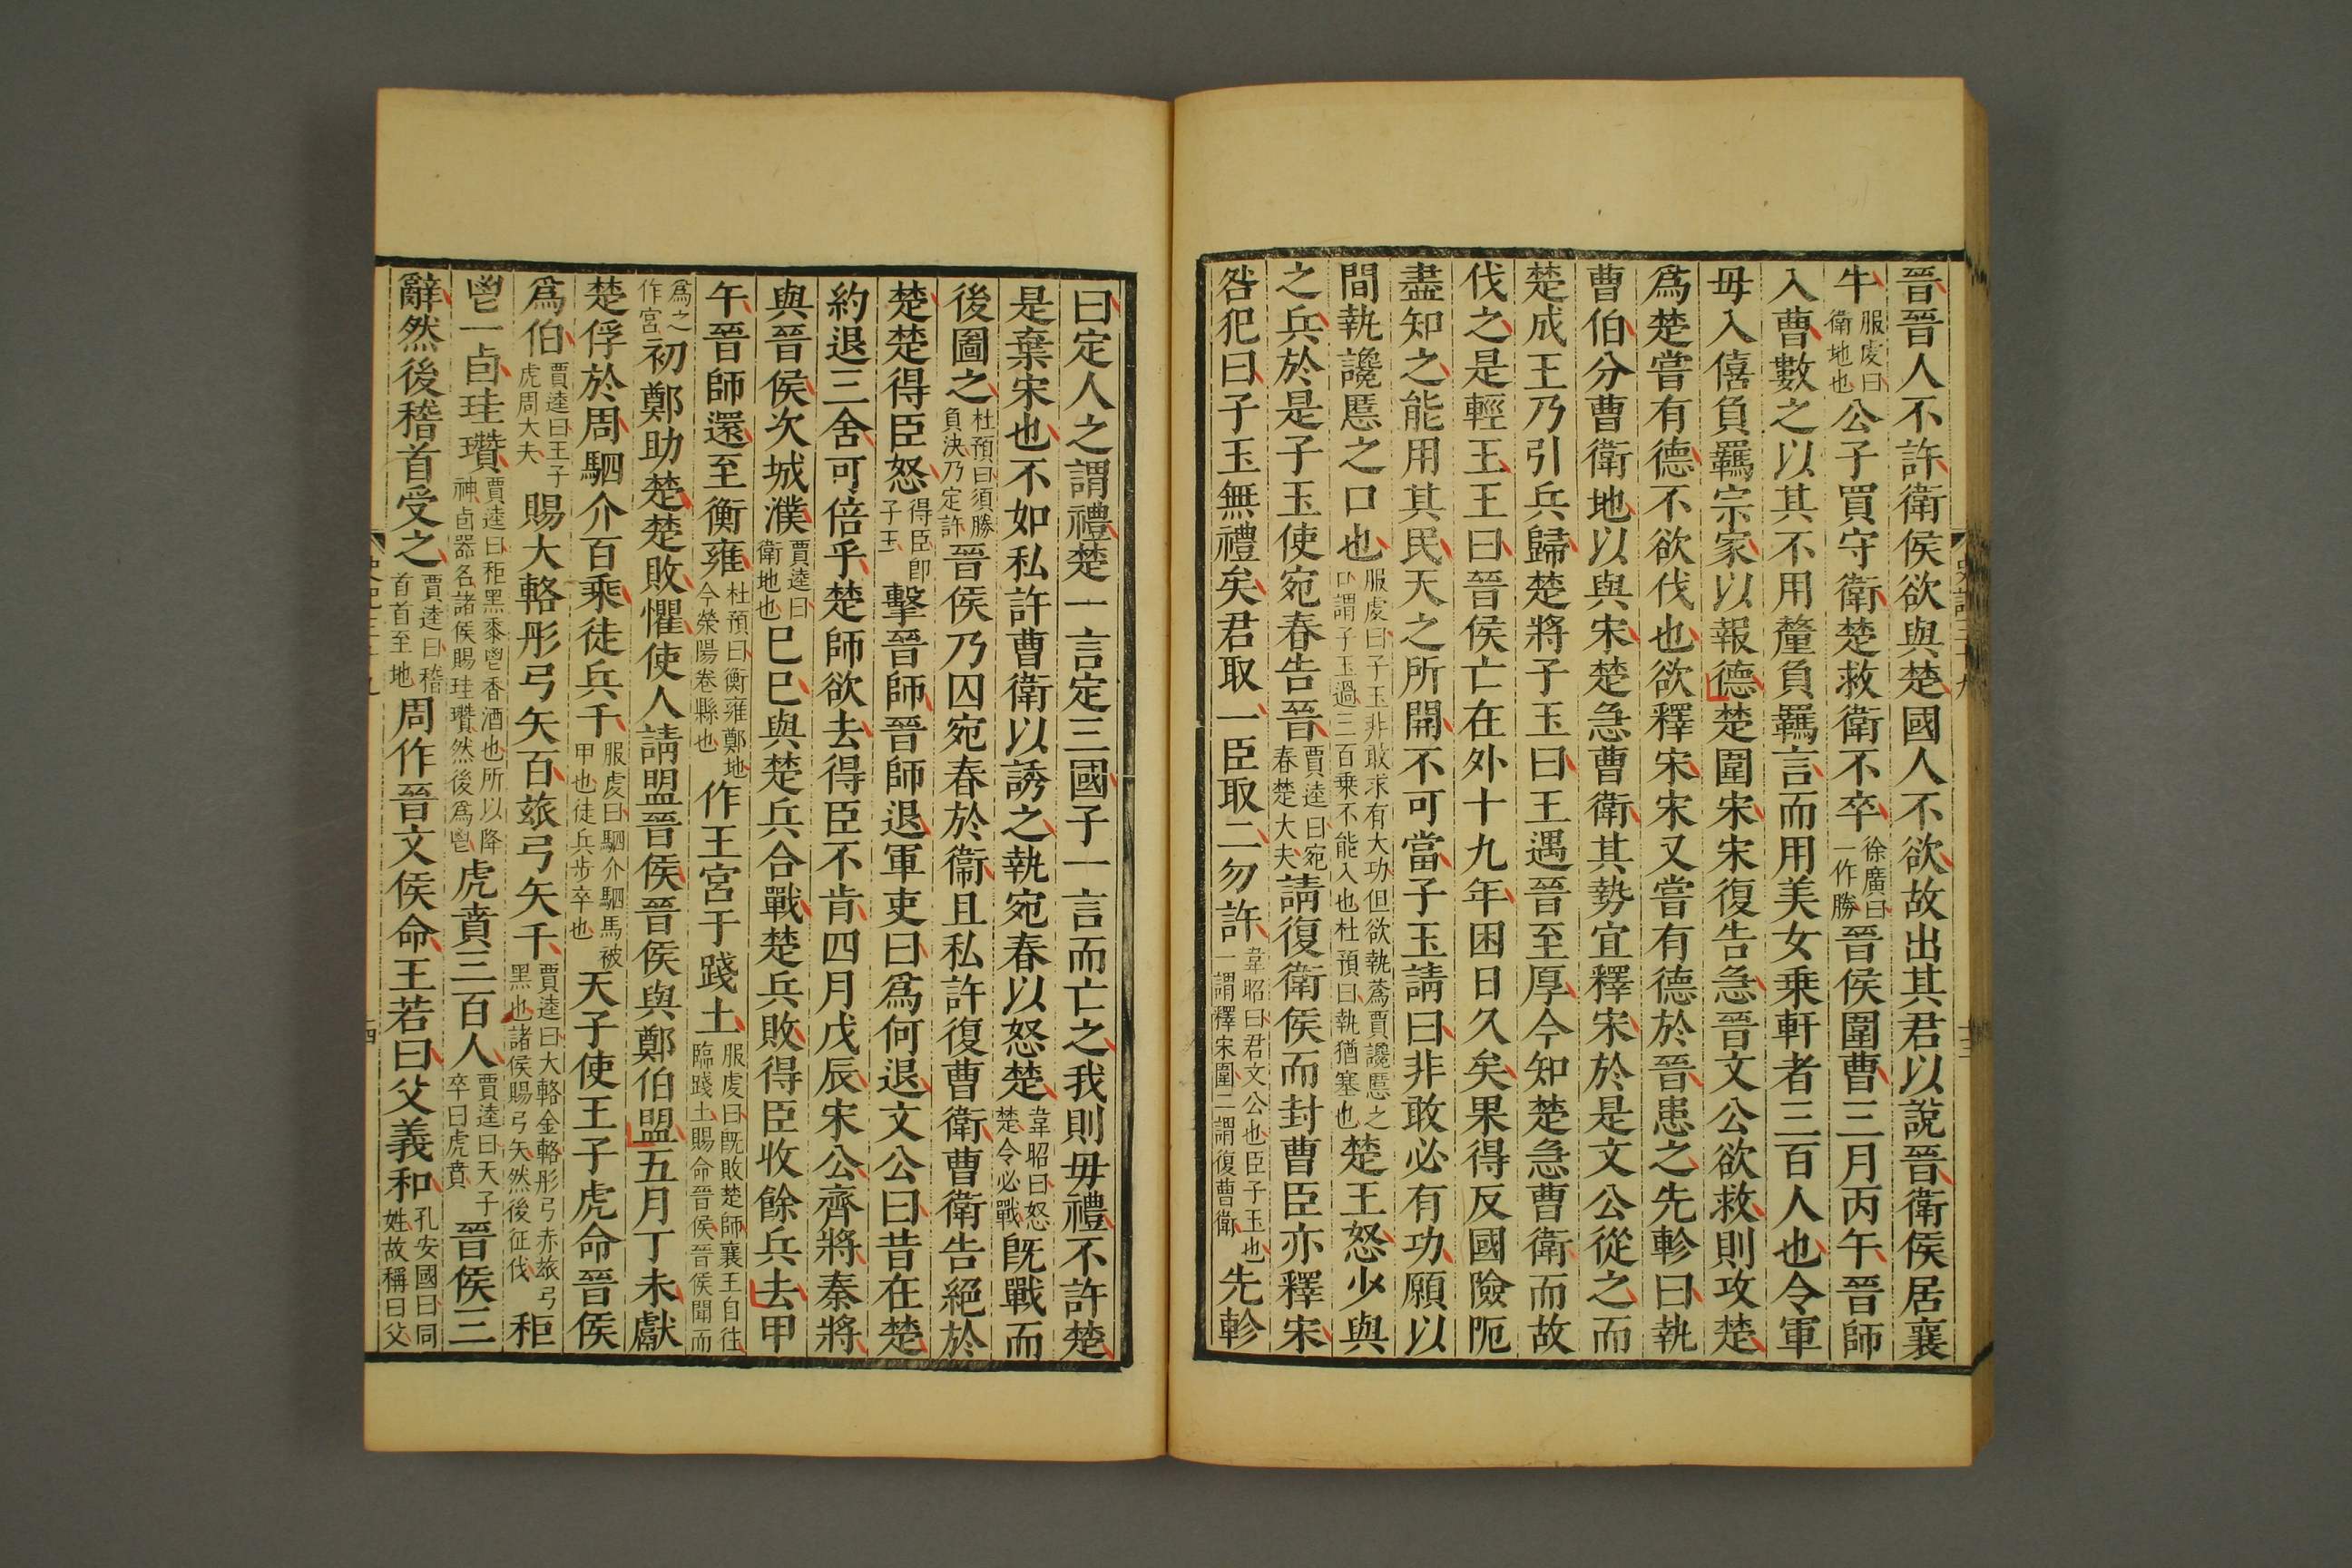 晉晉人不許衛侯欲與楚國人不欲故出其君以說晉衛侯居襄
牛服虔曰衛地也公子買守衛楚救衛不卒徐廣曰一作勝晉侯圍曹三月丙午晉師
入曹數之以其不用釐負羈言而用美女乘軒者三百人也令軍
毋入僖負羈宗家以報德楚圍宋宋復告急晉文公欲救則攻楚
爲楚嘗有德不欲伐也欲釋宋宋又嘗有德於晉患之先軫曰執
曹伯分曹衛地以與宋楚急曹衛其勢宜釋宋於是文公從之而
楚成王乃引兵歸楚將子玉曰王遇晉至厚今知楚急曹衛而故
伐之是輕王王曰晉侯亡在外十九年困日久矣果得反國險阨
盡知之能用其民天之所開不可當子玉請曰非敢必有功願以
間執讒慝之口也服虔曰子玉非敢求有大功但欲執蔿賈讒慝之口謂子玉過三百乘不能入也杜預曰執猶塞也楚王怒少與
之兵於是子玉使宛春告晉賈逵曰宛春楚大夫請復衛侯而封曹臣亦釋宋
咎犯曰子玉無禮矣君取一臣取二勿許韋昭曰君文公也臣子玉也一謂釋宋圍二謂復曹衛先軫
曰定人之謂禮楚一言定三國子一言而亡之我則毋禮不許楚
是棄宋也不如私許曹衛以誘之執宛春以怒楚韋昭曰怒楚令必戰旣戰而
後圖之杜預曰須勝負決乃定許晉侯乃囚宛春於衛且私許復曹衛曹衛告絕於
楚楚得臣怒得臣卽子玉擊晉師晉師退軍吏曰爲何退文公曰昔在楚
約退三舍可倍乎楚師欲去得臣不肯四月戊辰宋公齊將秦將
與晉侯次城濮賈逵曰衛地也巳巳與楚兵合戰楚兵敗得臣收餘兵去甲
午晉師還至衡雍杜預曰衡雍鄭地今滎陽卷縣也作王宮于踐土服虔曰旣敗楚師襄王自往臨踐土賜命晉侯晉侯聞而
爲之作宮初鄭助楚楚敗懼使人請盟晉侯晉侯與鄭伯盟五月丁未獻
楚俘於周駟介百乘徒兵千服虔曰駟介駟馬被甲也徒兵步卒也天子使王子虎命晉侯
爲伯賈逵曰王子虎周大夫賜大輅彤弓矢百玈弓矢千賈逵曰大輅金輅彤弓赤玈弓黑也諸侯賜弓矢然後征伐秬
鬯一卣珪瓚賈逵曰秬黑黍鬯香酒也所以降神卣器名諸侯賜珪瓚然後爲鬯虎賁三百人賈逵曰天子卒曰虎賁晉侯三
辭然後稽首受之賈逵曰稽首首至地周作晉文侯命王若曰父義和孔安國曰同姓故稱曰父